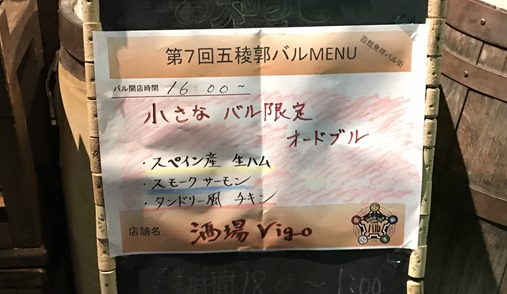 第7回五稜郭バルMENU
函館発祥バル街
バル開店時間 16:00~
小さな バル限定
オードブル
・スペイン産 生ハム
・スモークサーモン
・タンドリー風 チキン
店舗名 酒場 Vigo
バル
時間 18
~ 1:00